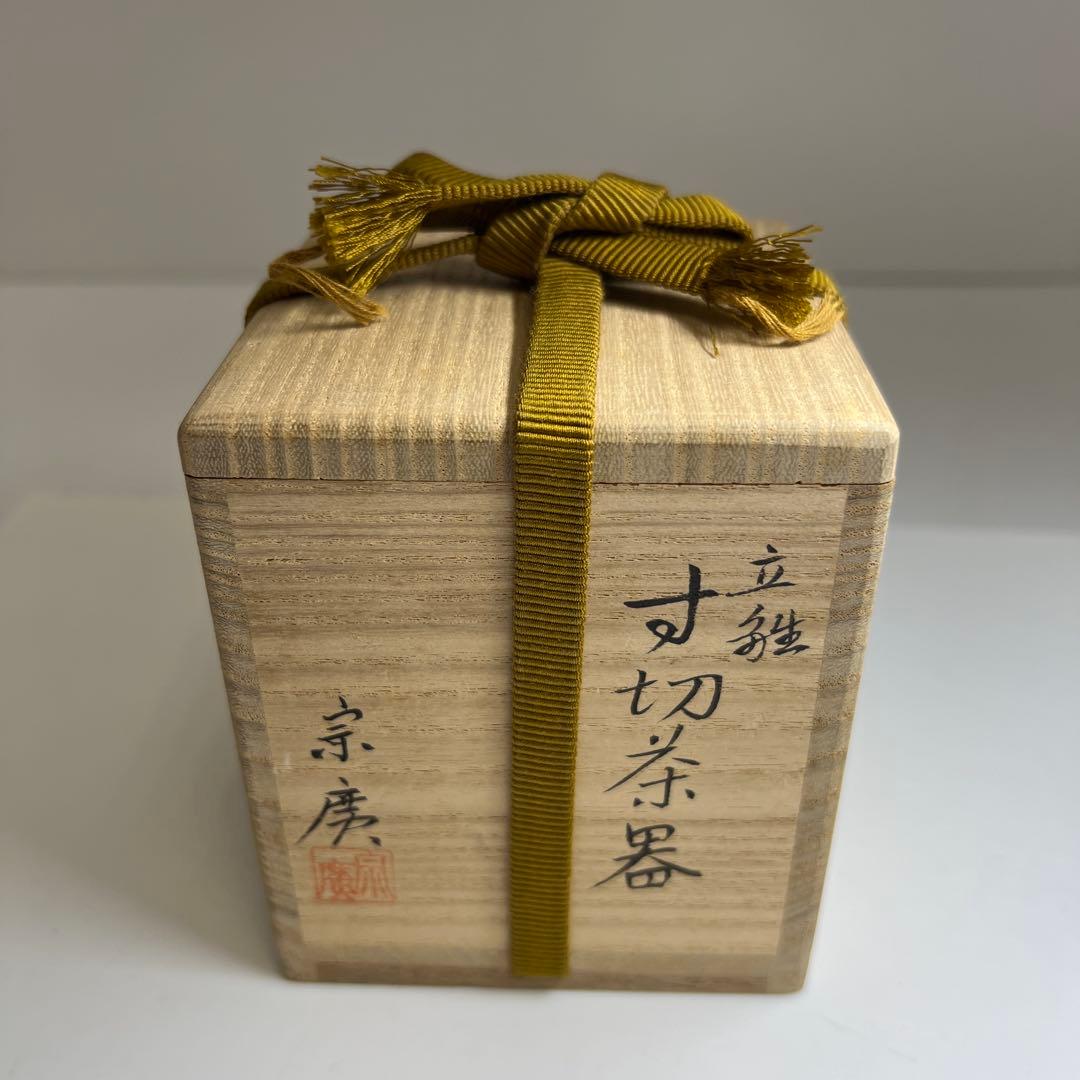 立雛
寸切茶器
宗廣
宗廣